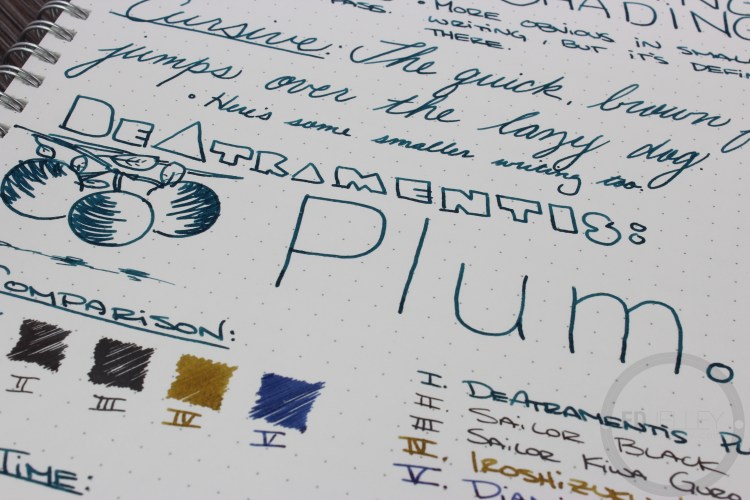 SHADING
• MORE OBVIOUS IN
WRITING, BUT IT'S
THERE.
Cursive: The quick, brown
jumps over the lazy dog.
• Here's some smaller writing too.
DEATRAMENTIS:
Plum.
COMPARISON:
II
III
IV
V
I. DEATRAMENTIS
II. SAILOR BLACK
III. SAILOR KIWA
IV.
V.
TIME: